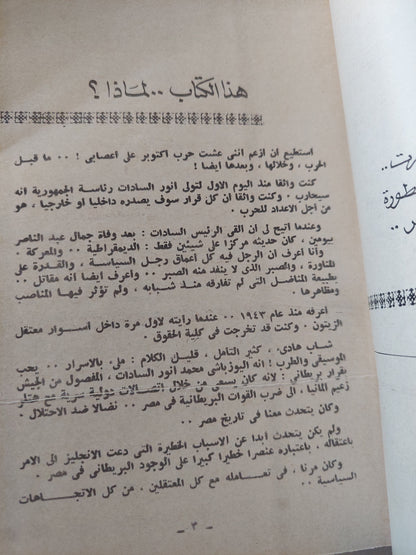 هذا الكتاب .. لماذا ؟
استطيع ان ازعم اننى عشت حرب اكتوبر على أعصابى ! .. ما قبل
الحرب ، وخلالها ، وبعدها ايضا !
كنت واثقا منذ اليوم الاول لتولى أنور السادات رئاسة الجمهورية انه
سيحارب . وكنت واثقا أن كل قرار سوف يصدره داخليا أو خارجيا ، هو
من أجل الاعداد للحرب .
وعندما اتيح لى ان القى الرئيس السادات : بعد وفاة جمال عبد الناصر
بيومين ، كان حديثه مركزا على شيئين فقط : الديمقراطية .. والمعركة .
وأنا أعرف أن الرجل فيه كل أعماق رجل السياسة ، والقدرة على
المناورة ، والصبر الذى لا ينفد منه الصبر .. وأعرف ايضا انه مقاتل ..
طبيعة المناضل التى لم تفارقه منذ شبابه ، ولم تؤثر فيها المناصب
ومظاهرها .
أعرفه منذ عام ١٩٤٣ .. عندما رأيته لاول مرة داخل اسوار معتقل
الزيتون . وكنت قد تخرجت فى كلية الحقوق .
شاب هادىء ، كثير التأمل ، قليل الكلام : ملىء بالاسرار .. يحب
الموسيقى والطرب ! انه اليوزباشى محمد أنور السادات ، المفصول من الجيش
بقرار بريطانى : لانه كان يسعى من خلال اتصالات دولية سرية مع هتلر
زعيم المانيا ، الى ضرب القوات البريطانية فى مصر .. نضالا ضد الاحتلال .
وكان يتحدث معنا فى تاريخ مصر ..
ولم يكن يتحدث أبدا عن الاسباب الخطيرة التى دعت الانجليز الى الامر
باعتقاله ، باعتباره عنصرا خطيرا كبيرا على الوجود البريطانى فى مصر .
وكان مرنا ، فى تعامله مع كل المعتقلين . من كل الاتجاهات
السياسية ..
- ٣ -